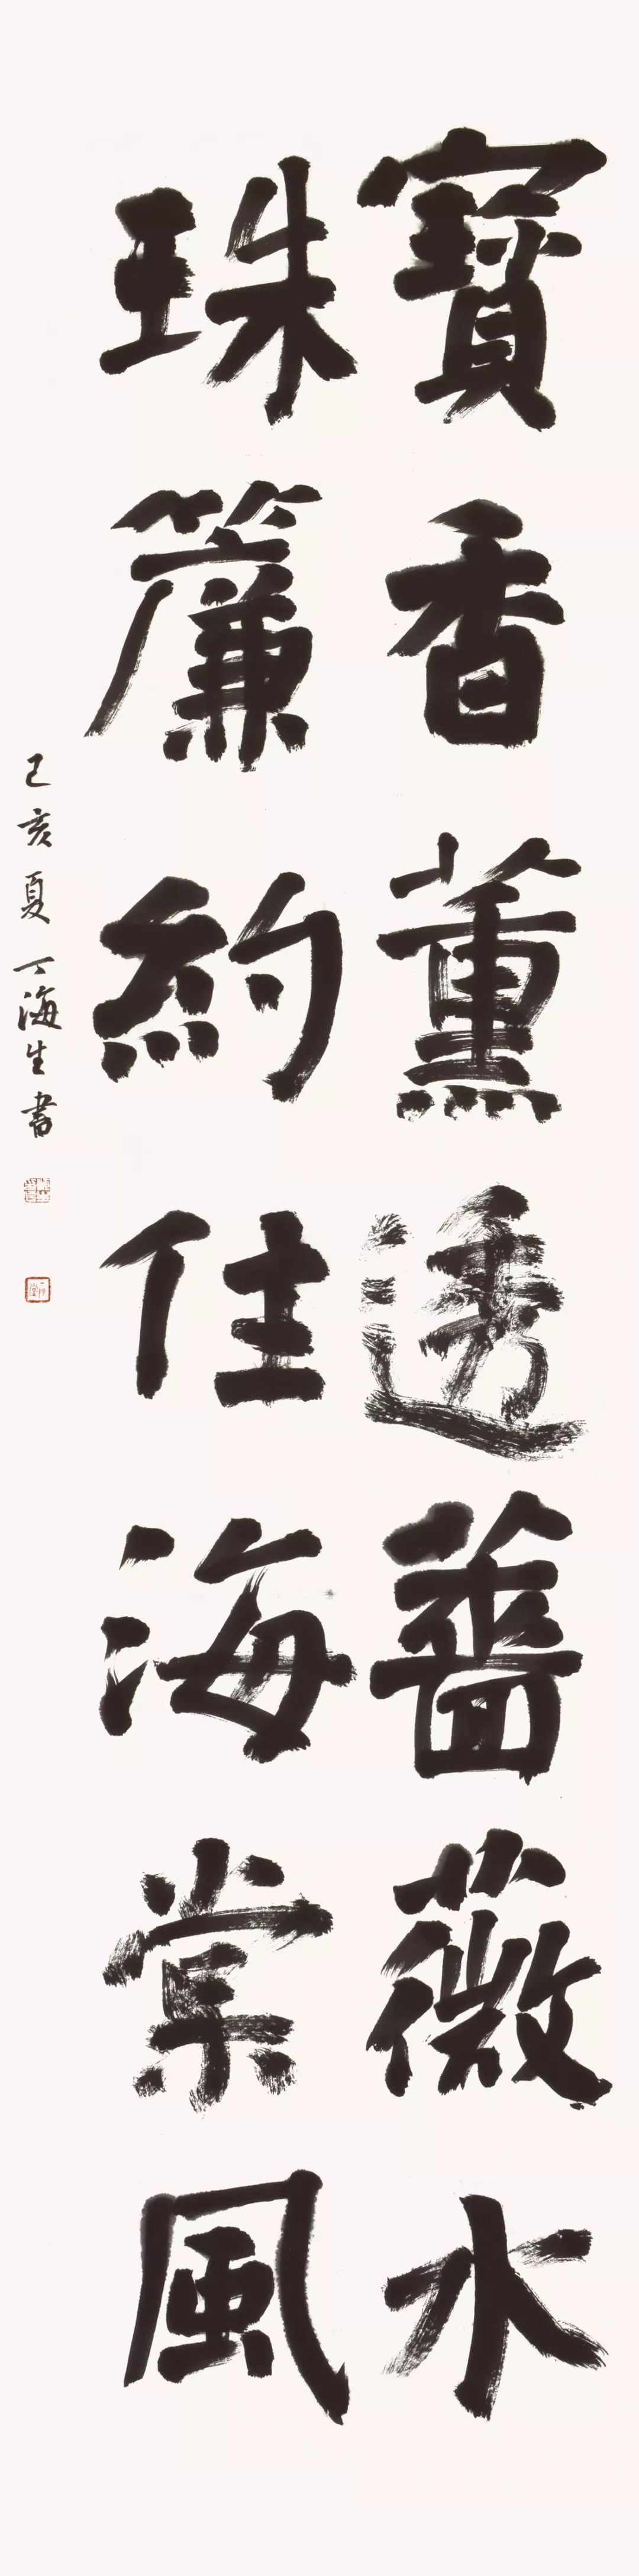 寶香薰透薔薇水
珠簾約住海棠風
己亥夏丁海生書